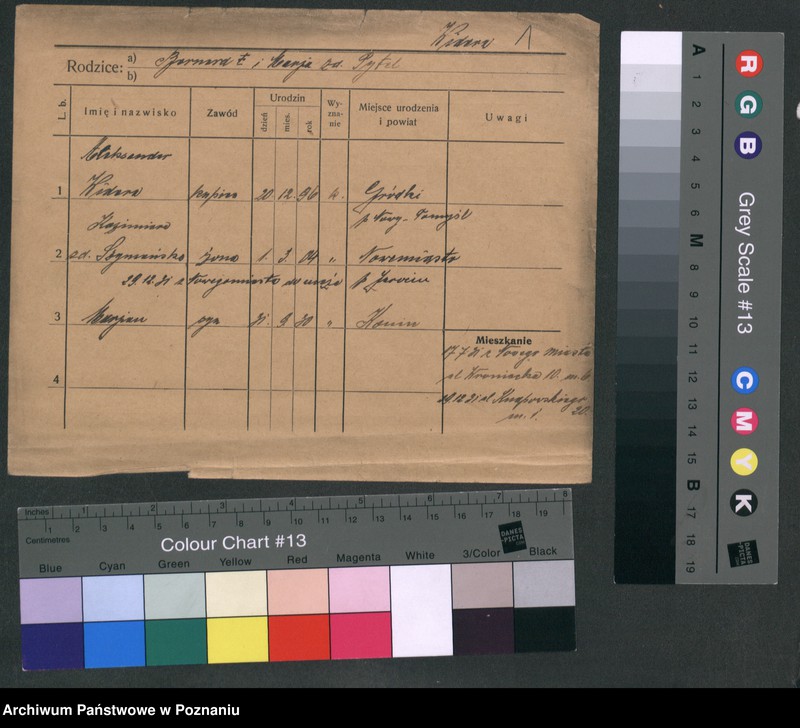 Widera
Rodzice: a) Bernard i Marja zd. Pytel
b)
L. b. Imię i nazwisko Zawód Urodzin dzień mies. rok Wyznanie Miejsce urodzenia i powiat Uwagi
Aleksander
1 Widera 20 12 96 k. Gródki
Kazimiera p Nowy-Tomyśl
2 zd. Szymańska żona 1. 3. 04 „ Nowemiasto
29.12.31 z Nowegomiasta do męża p Jarocin
3 Marjan syn 31 9 30 „
Mieszkanie
17 7 31 z Nowego miasta
ul 10. m. 6
29.12.31 ul. 20.
4 m. 1.
A 1 2 3 4 5 6 M 8 9 10 11 12 13 14 15 B 17 18 19
R G B
Grey Scale #13
C M Y K
DANES PICTA
Inches 1 2 3 4 5 6 7 8
Centimetres 1 2 3 4 5 6 7 8 9 10 11 12 13 14 15 16 17 18 19
Colour Chart #13
DANES PICTA
Blue Cyan Green Yellow Red Magenta White 3/Color Black
Archiwum Państwowe w Poznaniu